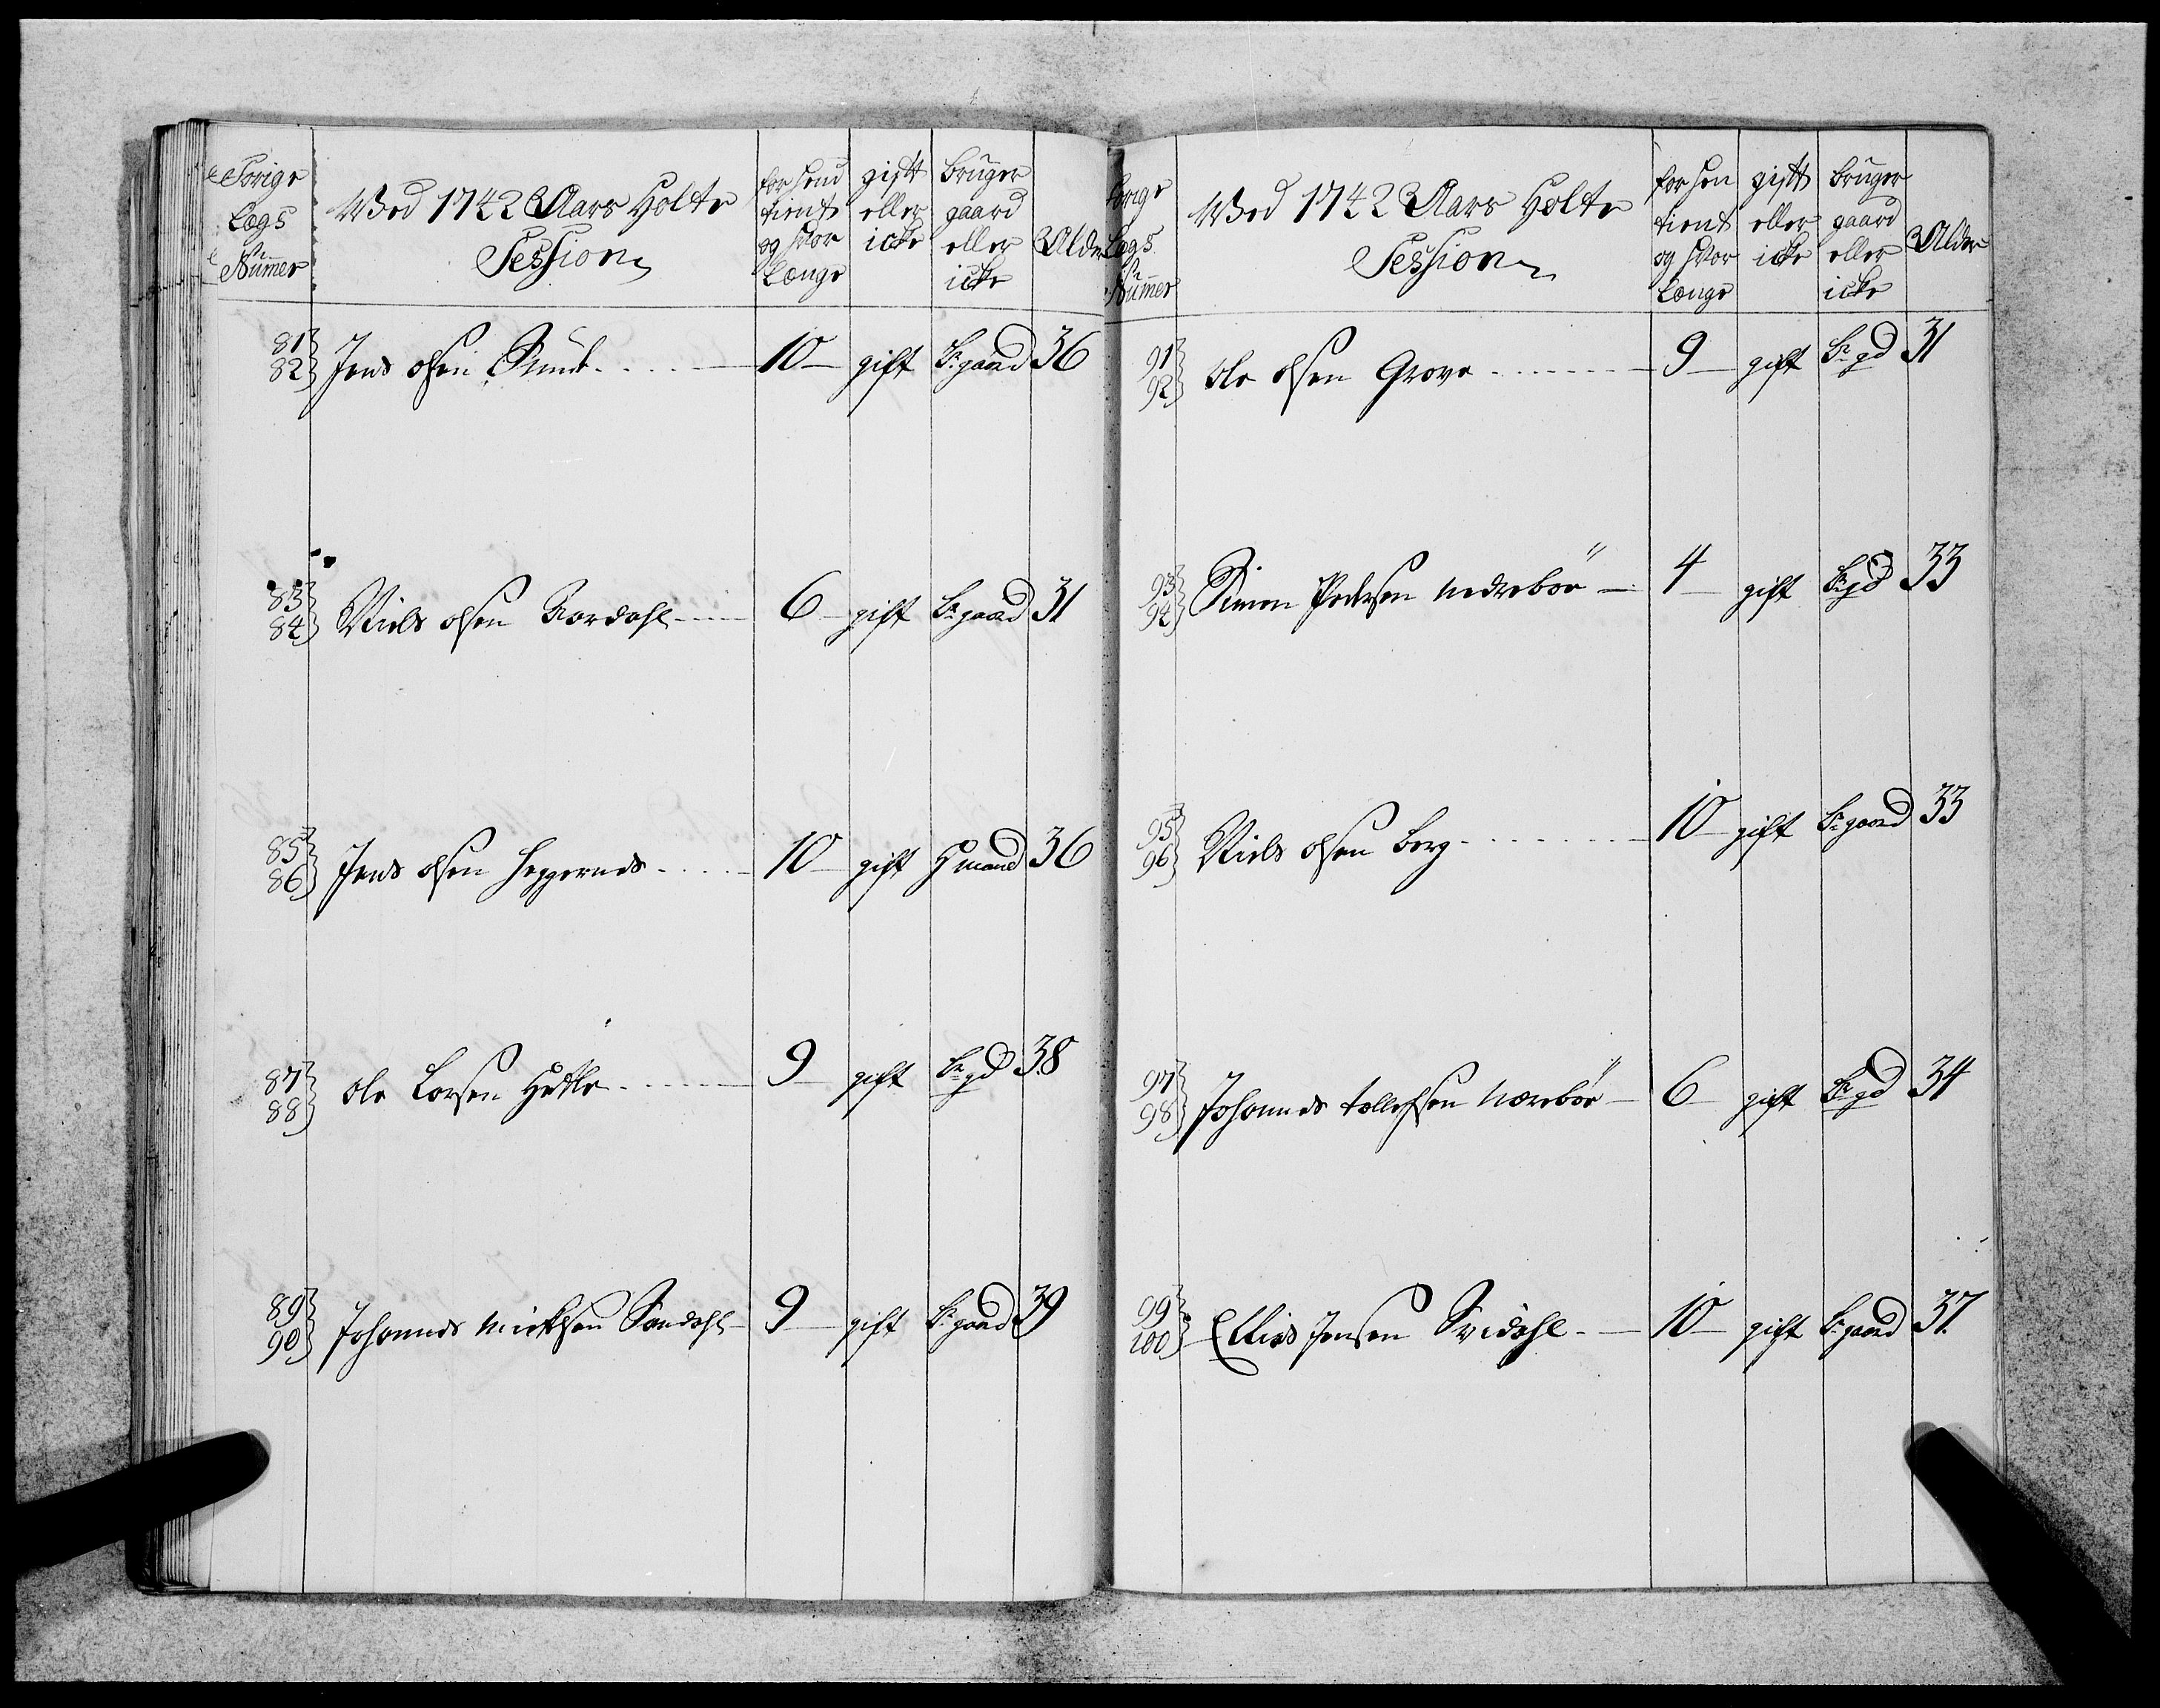 Forige Legs Numer | Wed 1742 Aars Holte Session | for hen tient og hvor Længe | gift eller icke | bruger gaard eller icke | Alder
81 82 Jens olsen - 10 - gift Br: gaard 36
83 84 Niels olsen Aardahl - 6 - gift Br: gaard 31
85 86 Jens olsen Heggernes - 10 - gift H mand 36
87 88 ole Larsen Hetle - 9 - gift Br: gd 38
89 90 Johannes Michelsen Sandahl - 9 - gift Br: gaard 39
Forige Legs Numer | Wed 1742 Aars Holte Session | for hen tient og hvor Længe | gift eller icke | bruger gaard eller icke | Alder
91 92 ole olsen Grove - 9 - gift Br: gd 31
93 94 Simen Pedersen nedreböe - 4 - gift Br: gd 33
95 96 Niels olsen berg - 10 - gift Br: gaard 33
97 98 Johannes tollefsen næreböe - 6 - gift Br: gd 34
99 100 Ellias Jensen Svidahl - 10 - gift Br: gaard 37.